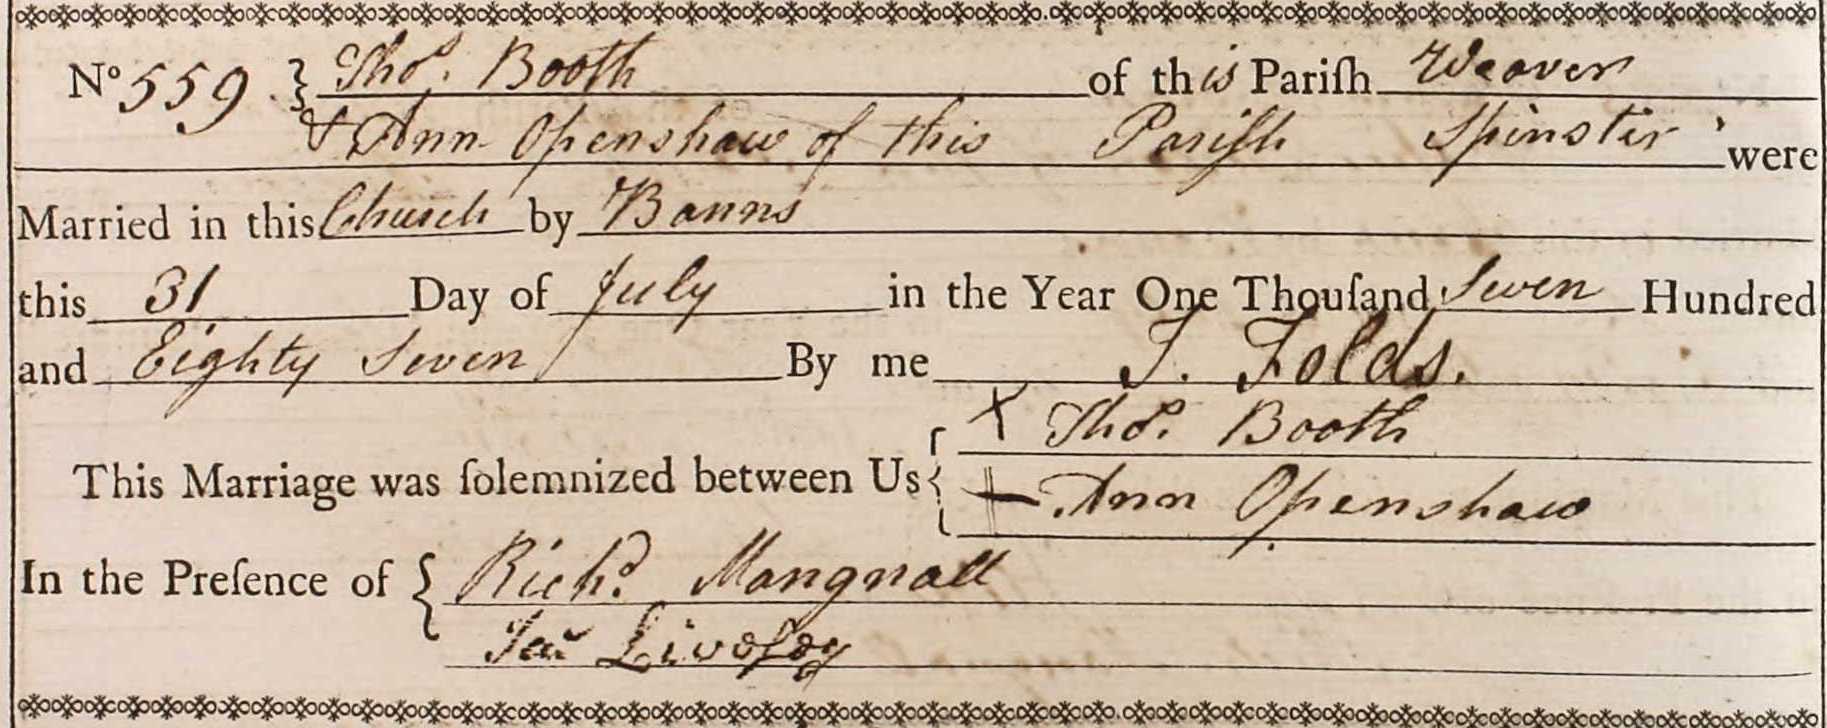 No 559 } Thos. Booth of this Pariſh Weaver
& Ann Openshaw of this Pariſh Spinster were
Married in this Church by Banns
this 31 Day of July in the Year One Thouſand Seven Hundred
and Eighty Seven By me J. Folds.
X Thos. Booth
This Marriage was ſolemnized between Us {
Ann Openshaw
In the Preſence of { Richd. Mangnall
Jas Livoſey